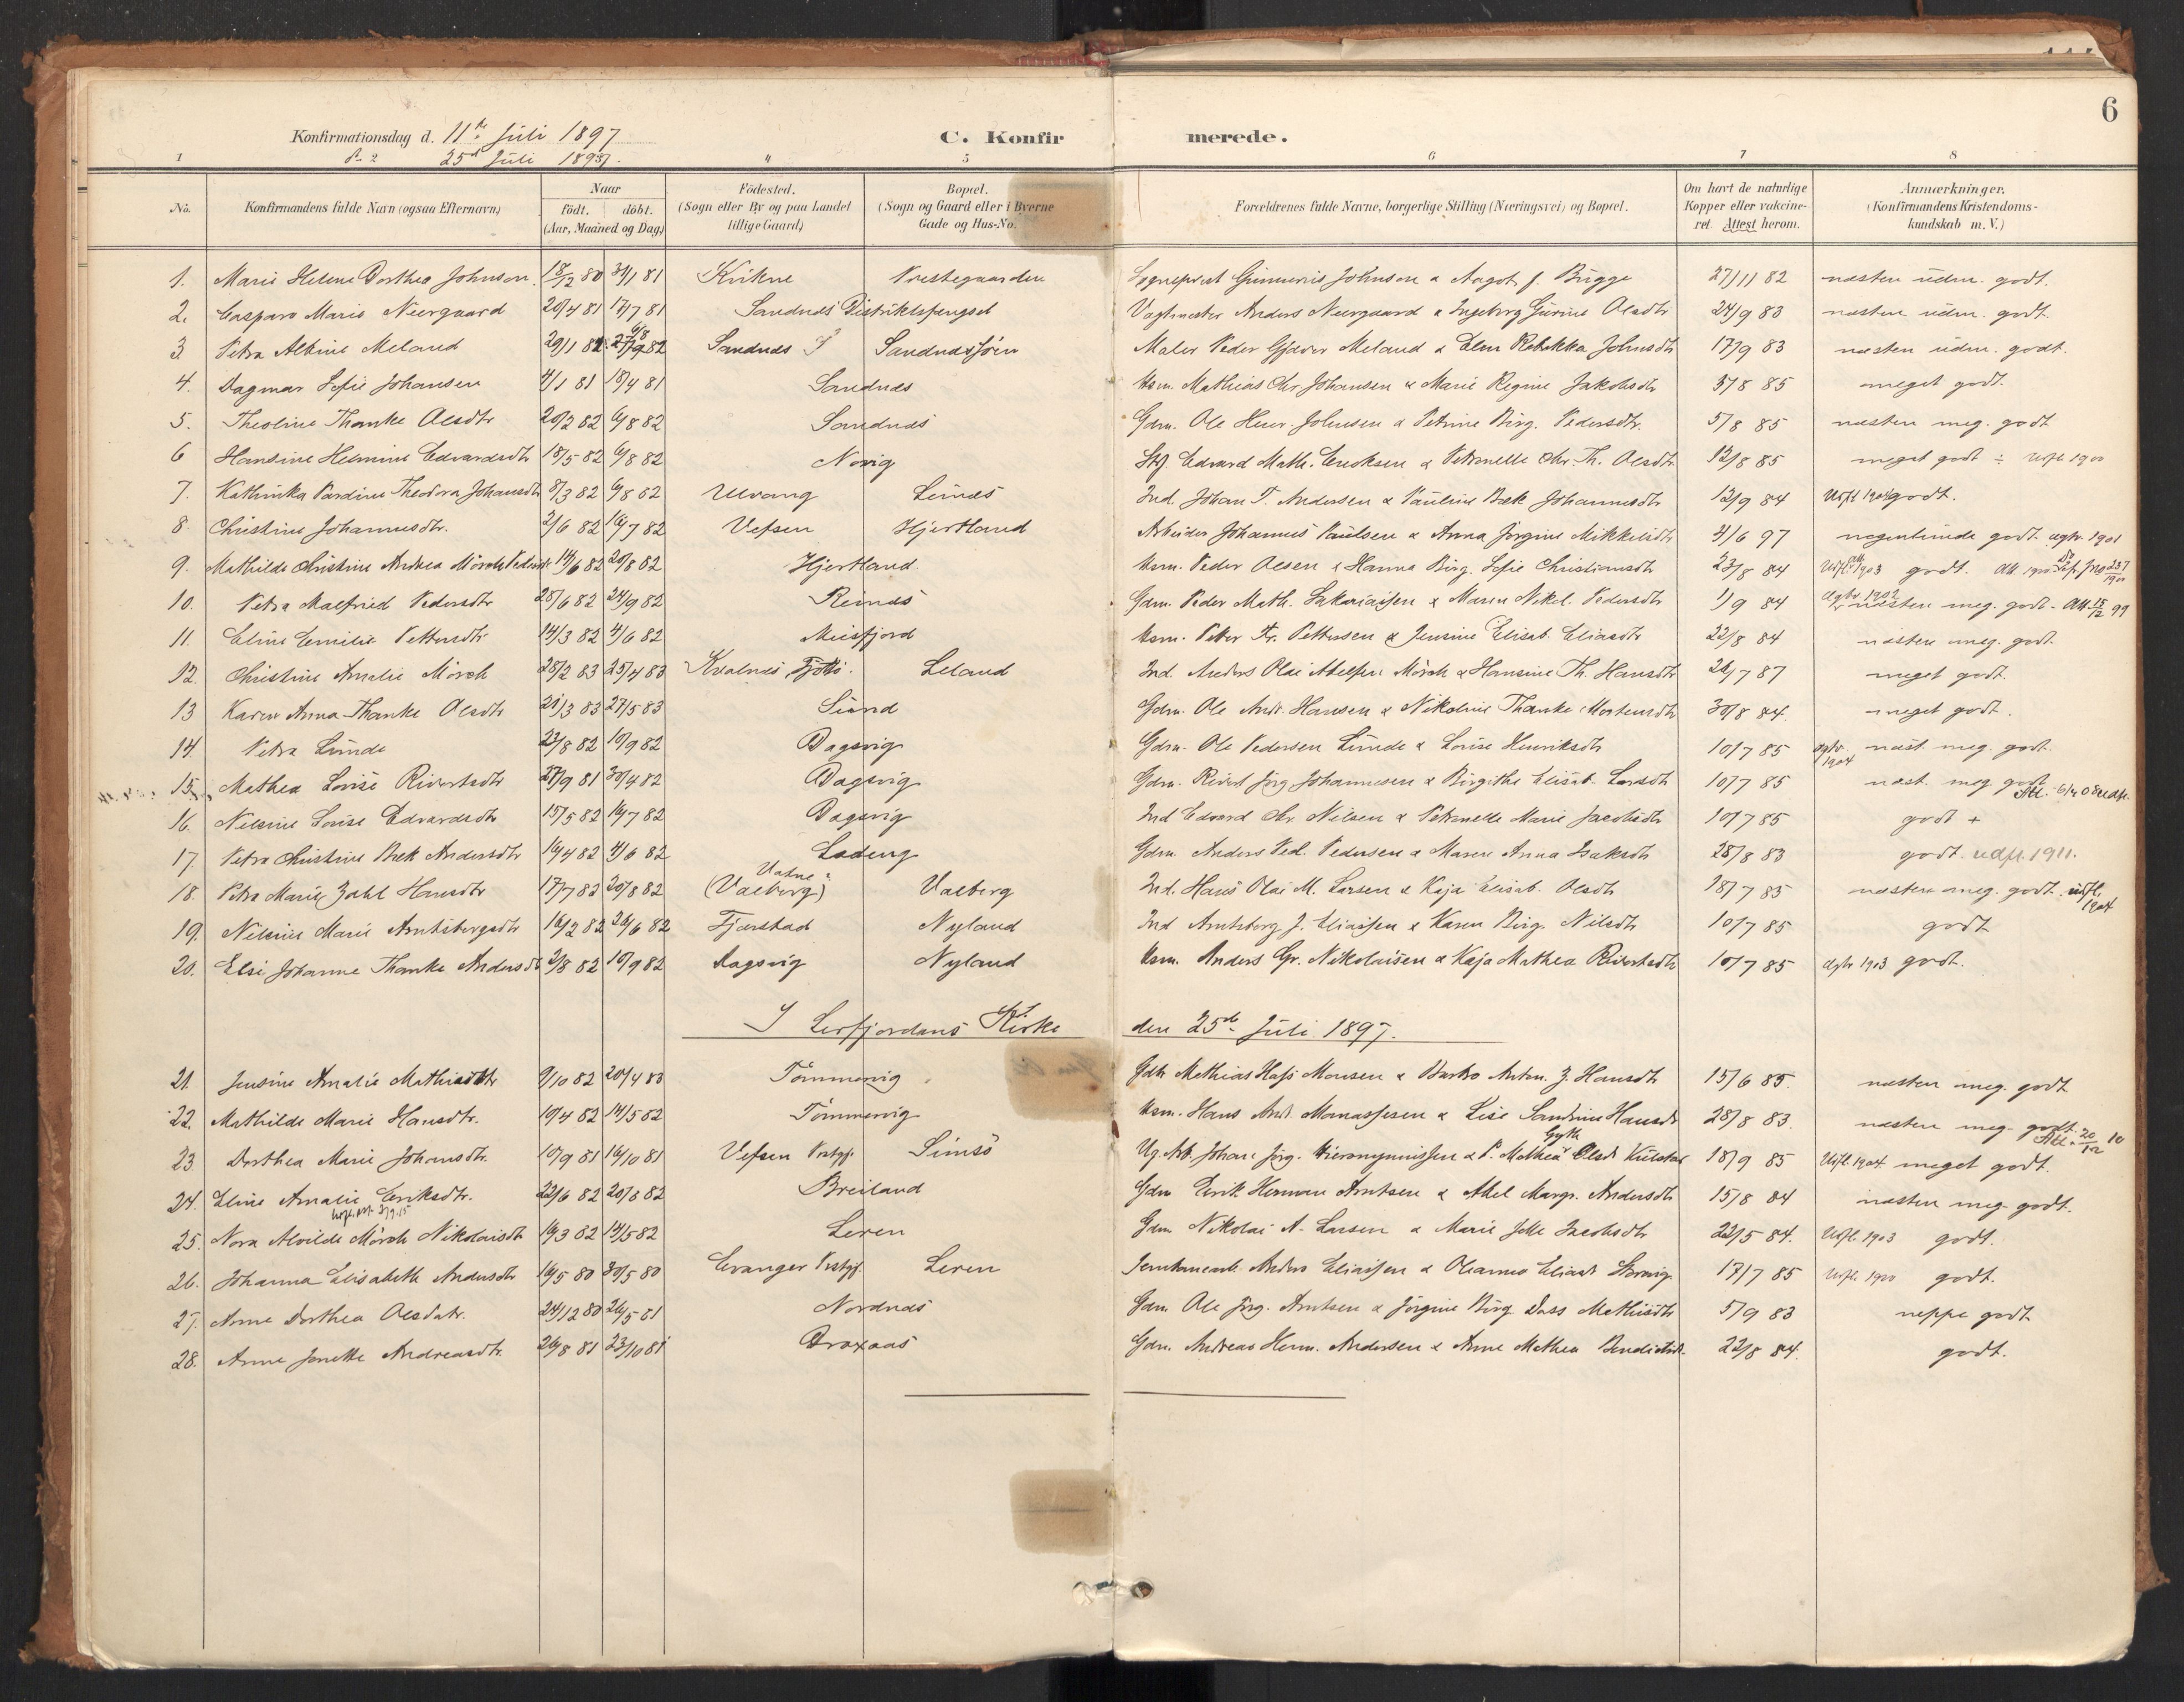 6
Konfirmationsdag d. 11te Juli 1897
C. Konfirmerede.
25de Juli 1897.
1 2 4 5 6 7 8
No. Konfirmandens fulde Navn (ogsaa Efternavn) Naar født. døbt. (Aar, Maaned og Dag) Födested. (Sogn eller By og paa Landet tillige Gaard) Bopæl. (Sogn og Gaard eller i Byerne Gade og Hus-No. Forældrenes fulde Navne, borgerlige Stilling (Næringsvei) og Bopæl. Om havt de naturlige Kopper eller vaccineret. Attest herom. Anmærkninger. (Konfirmandens Kristendomskundskab m. V.)
1. Marie Helene Dorthea Johnson 18/12 80 30/1 81 Prestegaarden Sogneprest Johnson & Aagot f. Brügge 27/11 82 næsten udm. godt.
2. Caspara Marie Neergaard 20/4 81 17/7 81 Sandnes Distriktsfengsel Vagtmester Anders Neergaard & Ingeborg Gurine Olsdtr 24/9 83 næsten udm. godt.
3. Petra Albine Meland 29/11 81 82 Sandnes Sandnessjöen Maler Peder Gjæver Meland & Elen Rebekka Johnsdtr 17/9 83 næsten udm. godt.
4. Dagmar Sofie Johansen 4/1 81 18/4 81 Sandnes Hsm. Mathias Chr. Johansen & Marie Regine Jakobsdtr 5/8 85 meget godt.
5. Theoline Thanke Olsdtr 20/2 82 6/8 82 Sandnes Gdm. Ole Henr. Johnsen & Petrine Birg. Pedersdtr. 5/8 85 næsten meg. godt
6 Hansine Helmine Edvardsdtr 18/5 82 6/8 82 Novig Edvard Math. Eriksen & Petronelle Chr. Th. Olsdtr. 12/8 85 meget godt ÷ Utfl. 1900
7. Kathinka Pardine Theodora Johansdtr 8/3 82 6/8 82 Alvang Lines Ind. Johan T. Andersen & Pauline Bæk Johannesdtr 12/9 84 Utfl 1904 godt.
8. Christine Johannesdtr. 2/6 82 16/7 82 Vefsen Hjertland Arbeider Johannes Paulsen & Anna Jörgine Mikkelsdtr 4/6 97 nogenlunde godt. agtv. 1901
9. Mathilde Christine Andrea Mörch Pedersdtr 14/6 82 20/8 82 Hjertland Hsm. Peder Olsen & Hanna Birg. Sofie Christiansdtr 23/8 84 Utfl. 1903 godt.
10. Petra Malfried Pedersdtr 28/6 82 24/9 82 Reines Gdm. Peder Math. Sakariassen & Maren Nikol. Pedersdtr 1/9 84 Agtv 1902 næsten meg. godt - Att 15/12 99
11. Eline Emilie Pettersdtr 14/3 82 4/6 82 Meisfjord Hsm. Peter Fr. Pettersen & Jensine Elisab. Eliasdtr 22/8 84 næsten meg. godt.
12. Christine Amalie Mörch 28/2 83 25/4 83 Kvalnes, Tjötta. Leland Ind. Anders Olai Abelsen Mörch & Hansine Th. Hansdtr 26/7 87 meget godt.
13 Karen Anna Thanke Olsdtr 21/3 83 27/5 83 Sund Gdm. Ole Andr. Hansen & Nikoline Thanke Mortensdtr 30/8 84. meget godt.
14. Petra Lunde 23/8 82 10/9 82 Dagsvig Gdm. Ole Pedersen Lunde & Lovise Henriksdtr 10/7 85 agtv 1904 næst. meg. godt.
15. Mathea Lovise Rivertsdtr 27/9 81 30/4 82 Dagsvig Gdm. Rivert Jörg. Johannesen & Birgithe Elisab. Larsdtr 10/7 85 næst. meg. godt
16. Nilsine Lovise Edvardsdtr 15/5 82 16/7 82 Dagsvig Ind Edvard Chr. Nilsen & Petronelle Marie Jacobsdtr 10/7 85 godt +
17. Petra Christine Bæk Andersdtr 16/4 82 4/6 82 Leding Gdm. Anders Ped. Pedersen & Maren Anna Isaksdtr 28/8 83 godt. udfl. 1911.
18. Petra Marie Zahl Hansdtr 17/7 82 20/8 82 (Valberg) Valberg Ind. Hans Olai M. Larsen & Kaja Elisab. Olsdtr 18/7 85 næsten meg. godt. utfl. 1904
19. Nilsine Marie Arntsbergsdtr 16/2 82 26/6 82 Fjærstad Nyland Ind Arntsberg J. Eliassen & Karen Birg. Nilsdtr 10/7 85 godt
20. Elsi Johanne Thanke Andersdtr 2/8 82 10/9 82 Dagsvig Nyland Hsm. Anders Gr. Nikolaisen & Kaja Mathea Rivertsdtr 10/7 85 Agtv 1903 godt.
I Lerfjordens Kirke den 25de Juli 1897.
21. Jensine Amalie Mathiasdtr 9/10 82 20/4 83 Tömmervig Mathias Hass Monsen & Anton. Z. Hansdtr 15/6 85. næsten meg. godt
22. Mathilde Marie Hansdtr. 10/4 82 14/5 82 Tömmervig Hsm. Hans Andr. Manassesen & Lise Sandrine Hansdtr 28/8 83 næsten meg. godt.
23 Dorthea Marie Johansdtr. 10/9 81 16/10 81 Vefsen Prstgj. Simsö Ug. Arb. Johan Jörg. Hieronymussen & P. Mathea Olsdtr 18/9 85 Utfl. 1904 meget godt.
24. Eline Amalie Eriksdtr. 22/6 82 20/8 82 Breiland Gdm Erik Herman Arntsen & Abel Margr. Andersdtr 15/8 84 næsten meg. godt.
25. Nora Alvilde Mörch Nikolaisdtr 16/3 82 14/5 82 Leren Gdm. Nikolai A. Larsen & Marie Jacobsdtr 22/5 84. Utfl. 1903 godt.
26. Johanna Elisabeth Andersdtr 16/5 80 30/5 80 Evanger Prstgj. Leren Anders Eliassen & Oleanna Eliasd. 17/7 85 Utfl. 1900 godt.
27. Anne Dorthea Olsdatr. 24/12 80 26/5 81 Nordnes Gdm. Ole Jörg. Arntsen & Jörgine Birg Dass Mathisdtr 5/9 83 neppe godt
28. Anne Jonette Andreasdtr. 26/8 81 23/10 81 Braxaas Gdm. Andreas Herm. Andersen & Anne Mathea Bendiktsd. 22/8 84. godt.